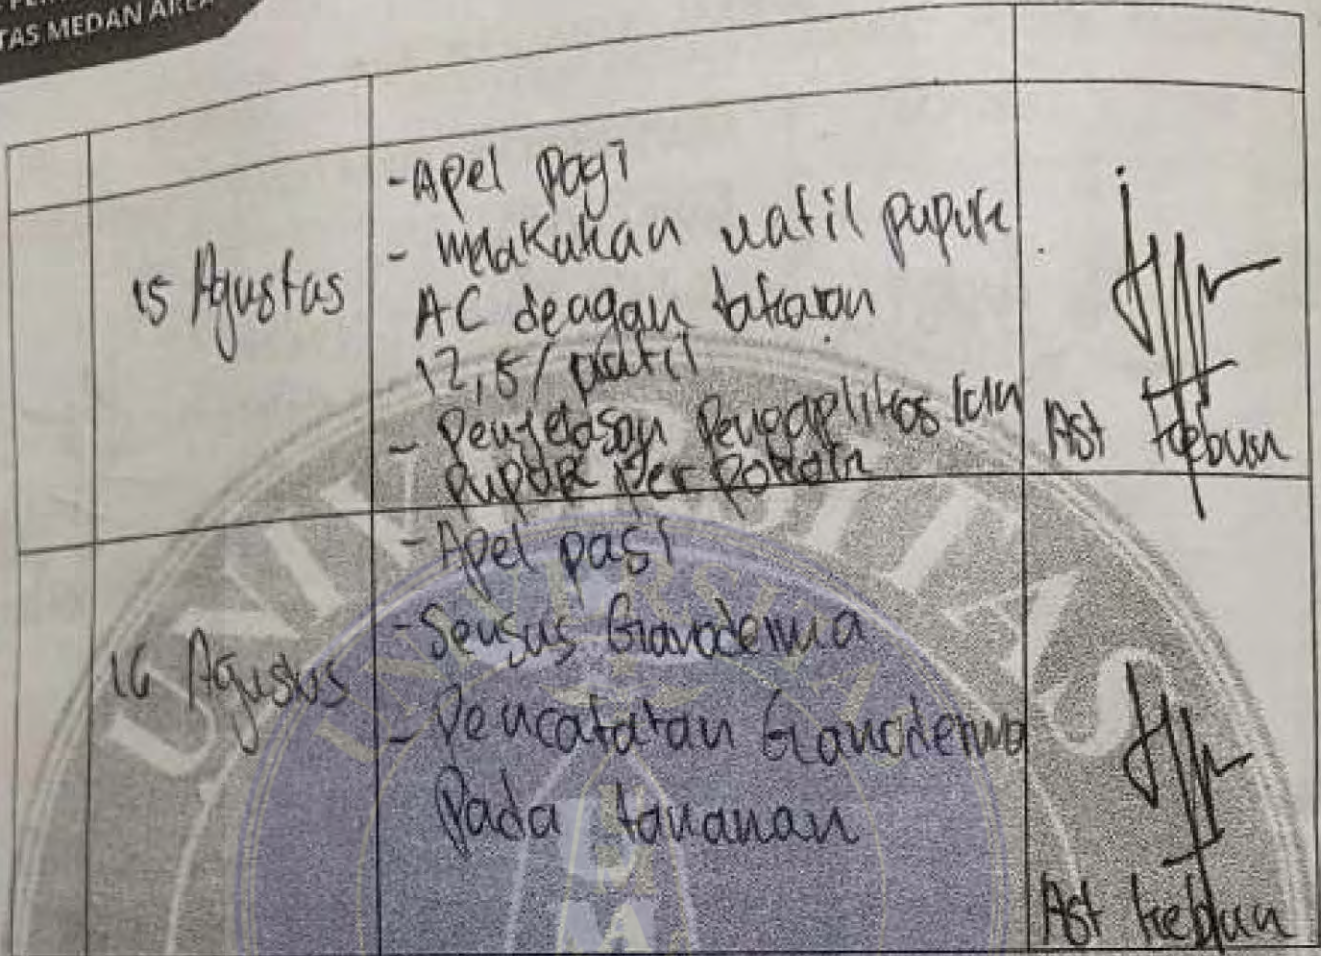 TAS MEDAN AREA
15 Agustus
- Apel pagi
- melakukan uatil pupuk
AC deagan takaran
12,5/ uatil
- Penjelasan Pengaplikasikan
pupuk per pokok
Ast Kebun
16 Agustus
- Apel pagi
- Sensus Ganoderma
- Pencatatan Ganoderma
Pada tanaman
Ast kebun
UNIVERSITAS
UNIVERSITAS